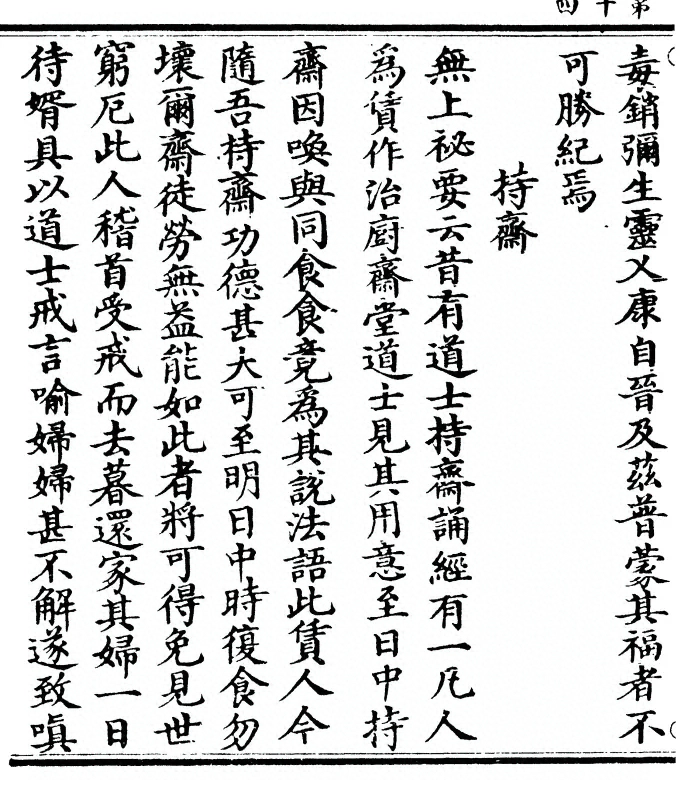 第十四
毒銷彌生靈乂康自晉及茲普蒙其福者不
可勝紀焉
持齋
無上祕要云昔有道士持齋誦經有一凡人
為賃作治廚齋堂道士見其用意至日中持
齋因喚與同食食竟為其說法語此賃人今
隨吾持齋功德甚大可至明日中時復食勿
壞爾齋徒勞無益能如此者將可得免見世
窮厄此人稽首受戒而去暮還家其婦一日
待婿具以道士戒言喻婦婦甚不解遂致嗔